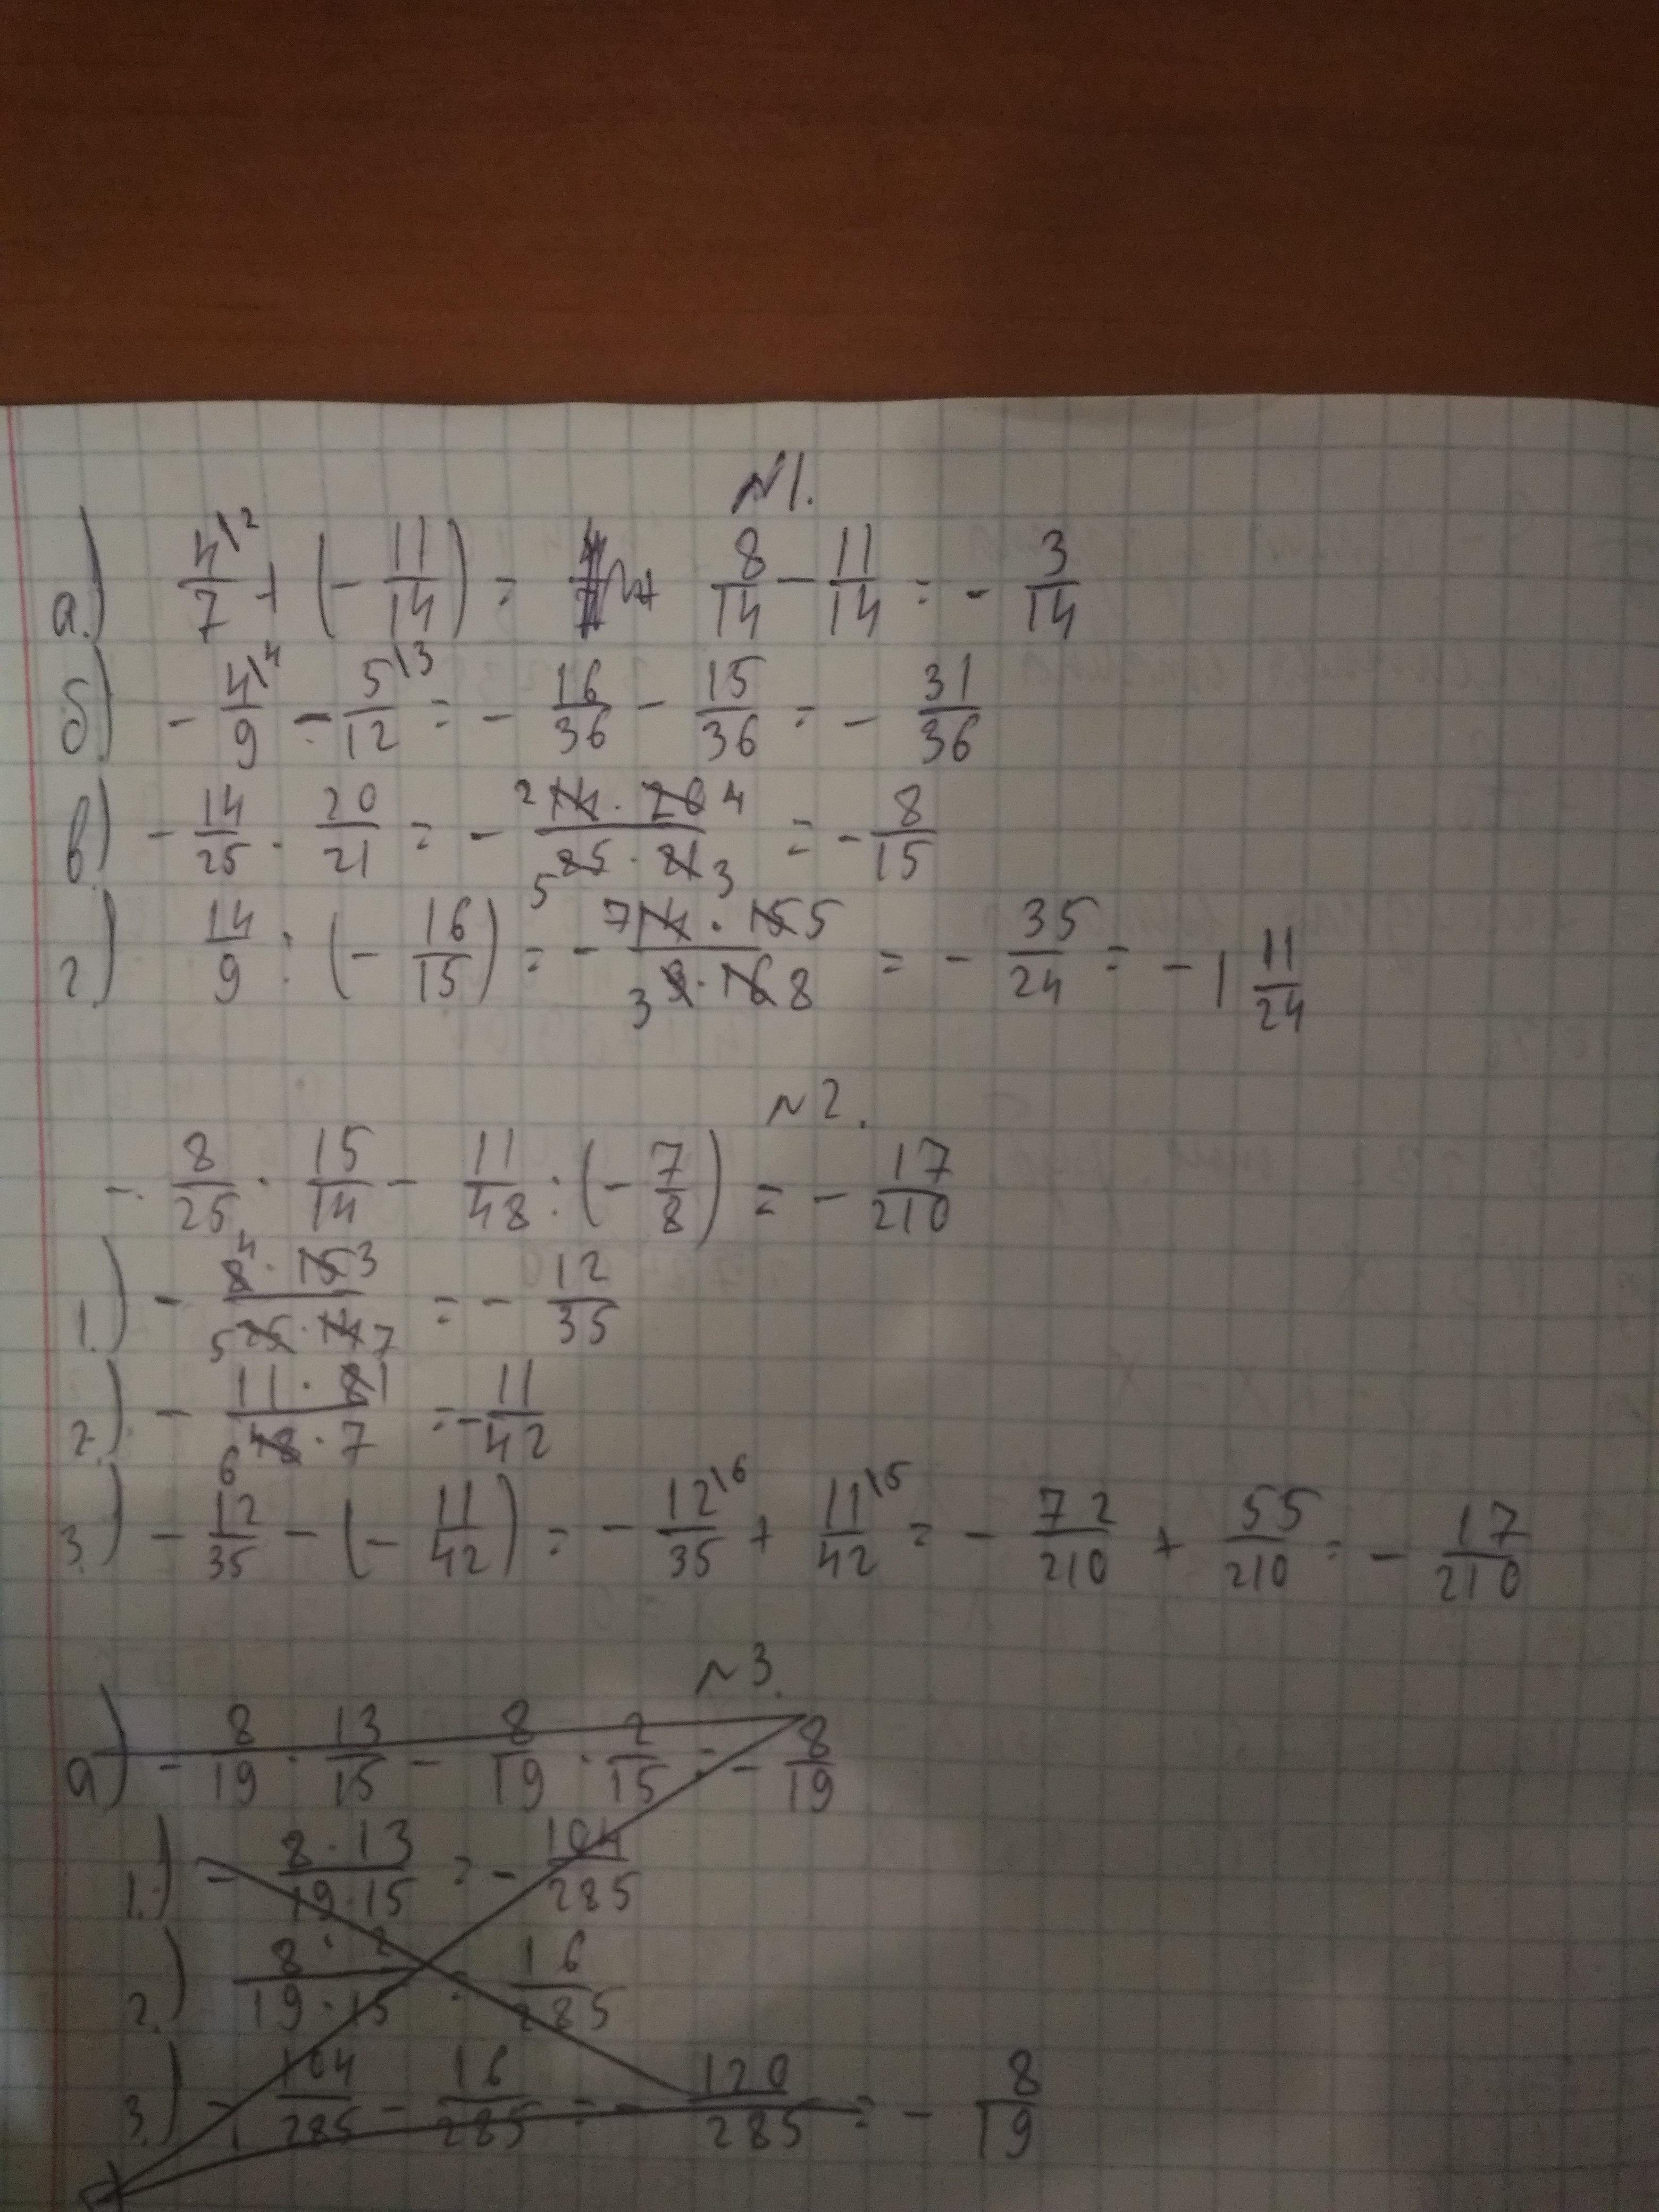 N1.
а.) 4/7 \2 + (- 11/14) = 8/14 - 11/14 = - 3/14
б.) - 4/9 \4 - 5/12 \3 = - 16/36 - 15/36 = - 31/36
в.) - 14/25 · 20/21 = - 2 14 · 20 4 / 5 25 · 21 3 = - 8/15
г.) 14/9 : (- 16/15) = - 7 14 · 15 5 / 3 9 · 16 8 = - 35/24 = - 1 11/24
N2.
- 8/25 · 15/14 - 11/48 : (- 7/8) = - 17/210
1.) - 8 4 · 15 3 / 5 25 · 14 7 = - 12/35
2.) - 11 · 8 1 / 6 48 · 7 = - 11/42
3.) - 12/35 - (- 11/42) = - 12/35 \6 + 11/42 \5 = - 72/210 + 55/210 = - 17/210
N3.
а) - 8/19 · 13/15 - 8/19 · 2/15 = - 8/19
1.) - 8 · 13 / 19 · 15 = - 104/285
2.) 8 · 2 / 19 · 15 = 16/285
3.) - 104/285 - 16/285 = - 120/285 = - 8/19